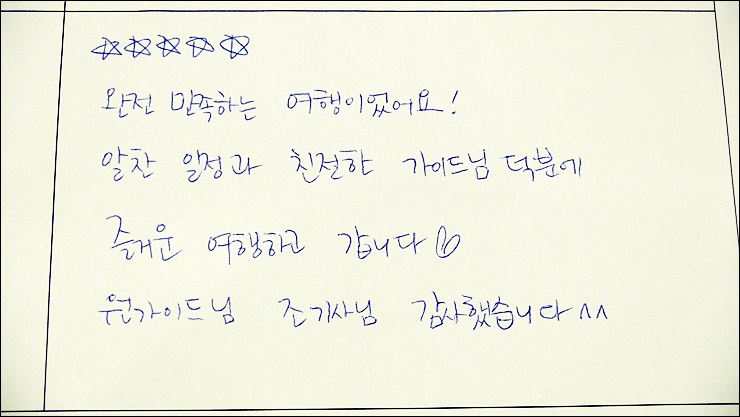 ☆☆☆☆☆
완전 만족하는 여행이었어요!
알찬 일정과 친절한 가이드님 덕분에
즐거운 여행하고 갑니다
원가이드님 조기사님 감사했습니다^^